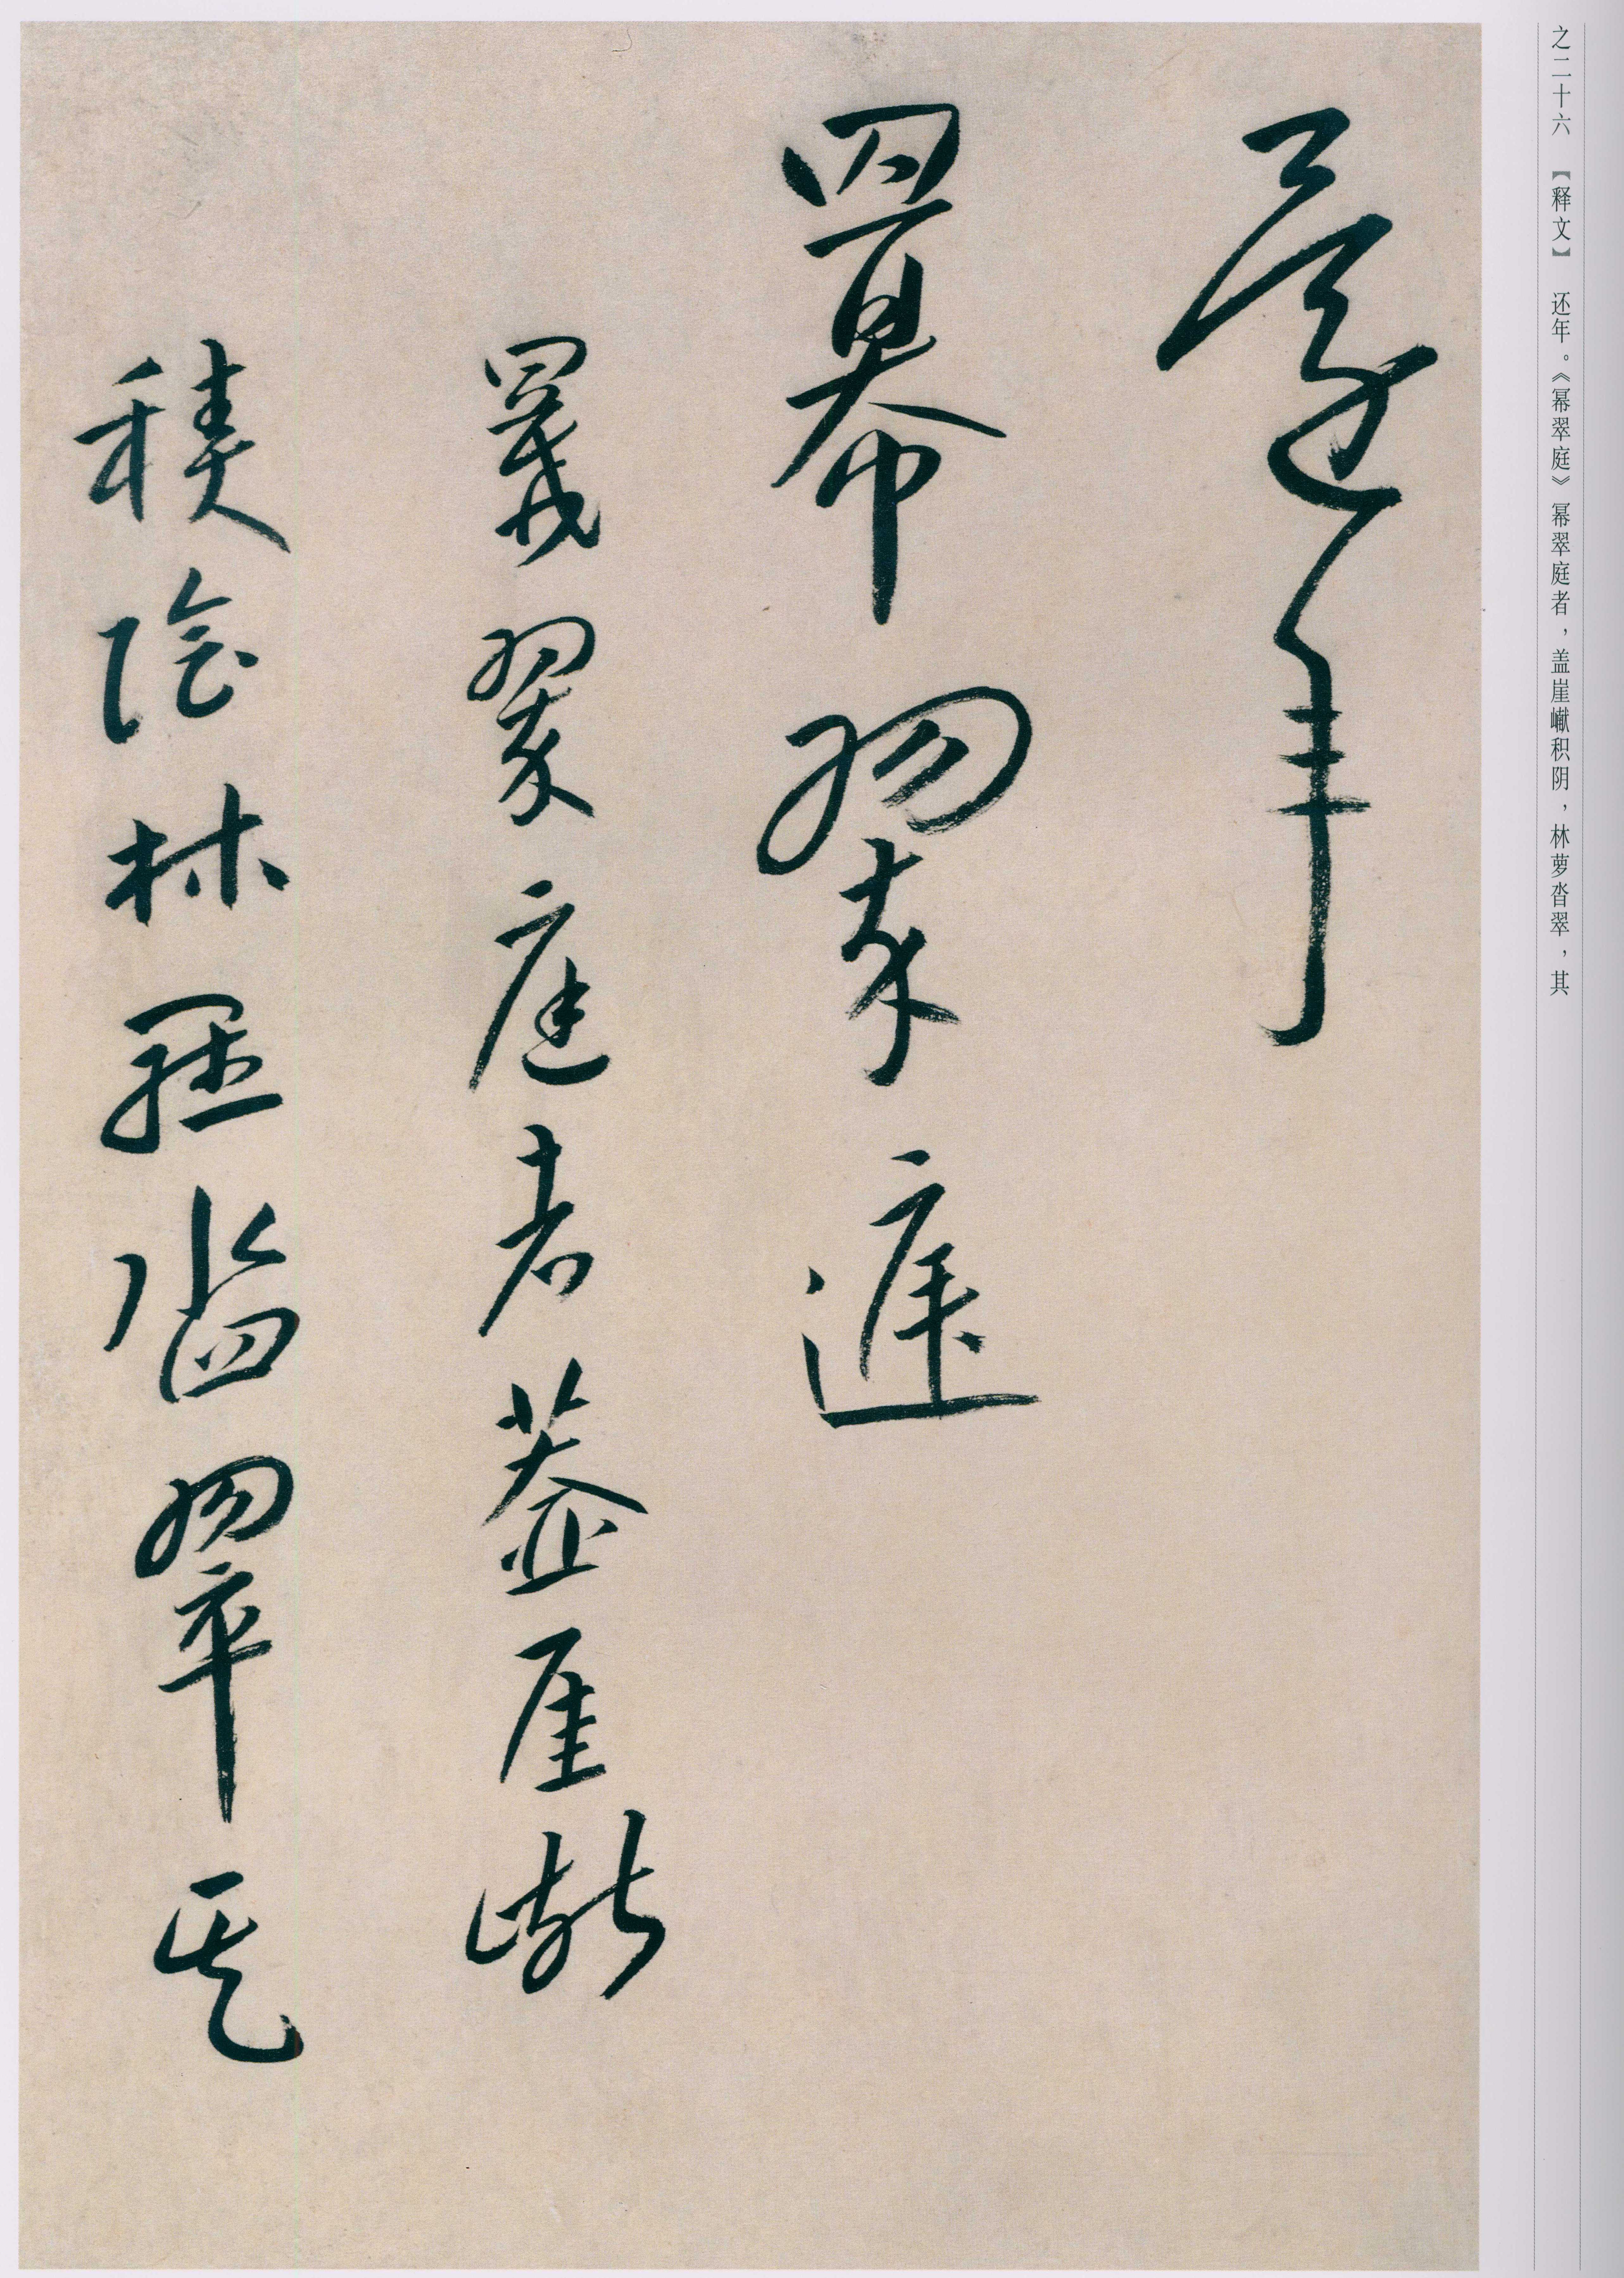 之二十六 【释文】 还年。《幂翠庭》幂翠庭者，盖崖巘积阴，林萝沓翠，其
還年
羃翠庭
羃翠庭者蓋崖巘
積陰林羅沓翠其